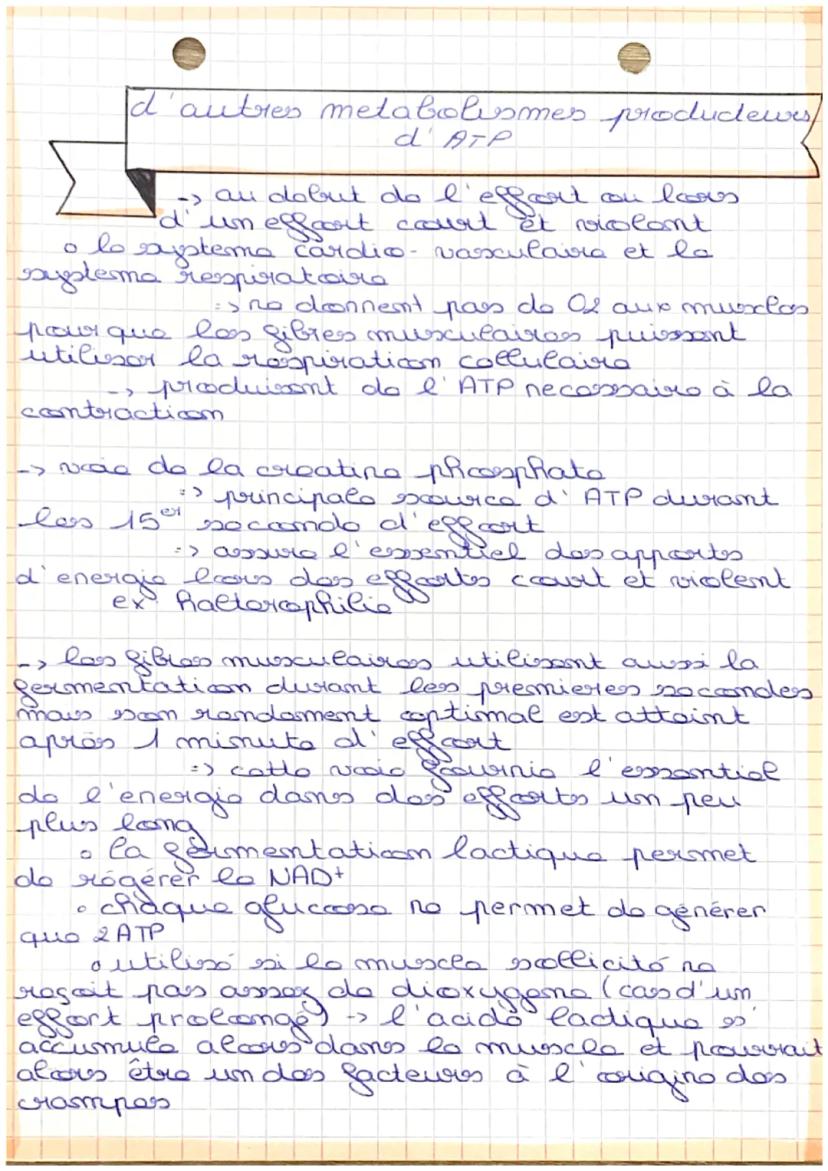 d'autres metabolismes producteurs
d'ATP
-> au debut de l'effort ou lors
d'un effort court et violent
o le systeme cardio-vasculaire et le
systeme respiratoire
=> ne donnent pas de O2 aux muscles
pour que les fibres musculaires puissent
utiliser la respiration cellulaire
-> produisent de l'ATP necessaire à la
contraction
-> voie de la creatine phosphate
=> principale source d'ATP durant
les 15er seconde d'effort
=> assure l'essentiel des apports
d'energie lors des efforts court et violent
ex: halterophilie
-> les fibres musculaires utilisent aussi la
fermentation durant les premieres secondes
mais son rendement optimal est atteint
après 1 minute d'effort
=> cette voie fournie l'essentiel
de l'energie dans des efforts un peu
plus long
o la fermentation lactique permet
de régérer le NAD+
o chaque glucose ne permet de générer
que 2 ATP
o utilisé si le muscle sollicité ne
reçoit pas assez de dioxygene (cas d'un
effort prolongé) -> l'acide lactique s'
accumule alors dans le muscle et pourrait
alors être un des facteurs à l'origine des
crampes